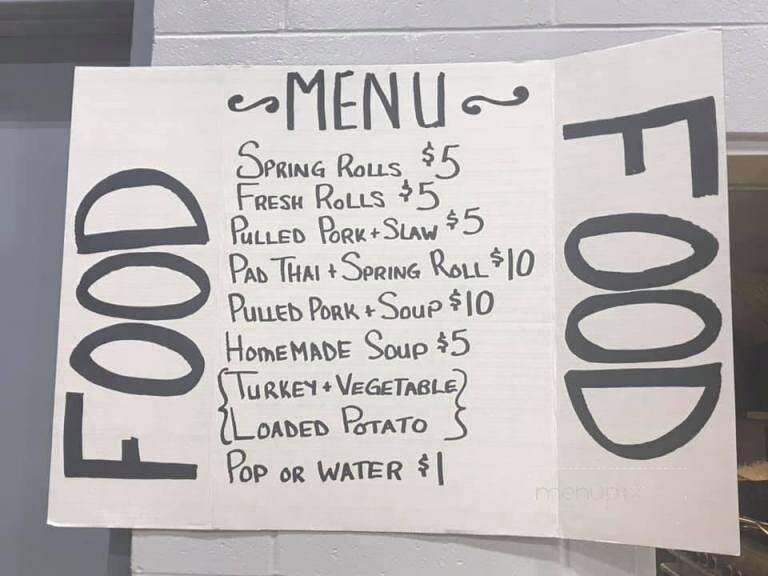 MENU
SPRING ROLLS $5
FRESH ROLLS $5
PULLED PORK + SLAW $5
PAD THAI + SPRING ROLL $10
PULLED PORK + SOUP $10
HOMEMADE SOUP $5
{TURKEY + VEGETABLE}
{LOADED POTATO}
POP OR WATER $1
FOOD
FOOD
menupix